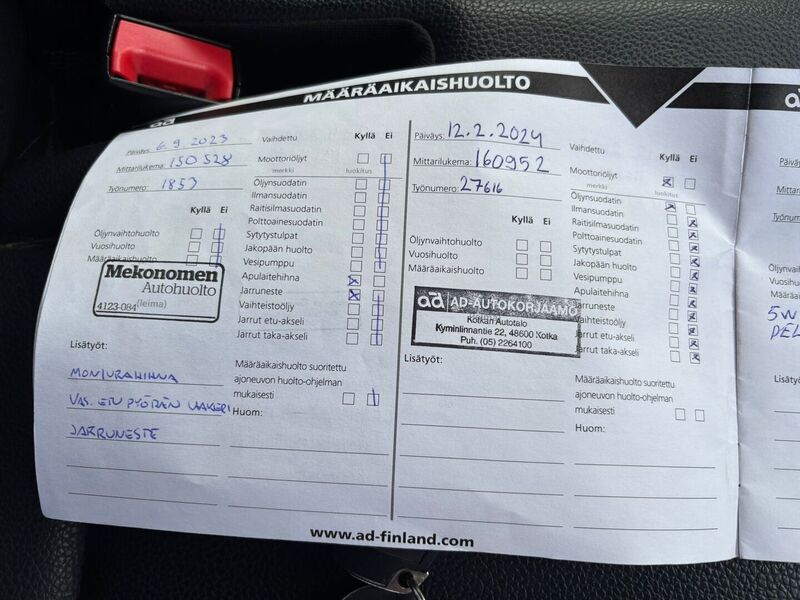 MÄÄRÄAIKAISHUOLTO
ad
Päiväys: 6.9 2023
Mittarilukema: 150 528
Työnumero: 1857
Kyllä Ei
Öljynvaihtohuolto
Vuosihuolto
Määräaikaishuolto
Mekonomen
Autohuolto
4123-084 (leima)
Lisätyöt:
MONIURAHIHNA
VAS. ETU PYÖRÄN LAAKERI
JARRUNESTE
Vaihdettu Kyllä Ei
Moottoriöljyt
merkki luokitus
Öljynsuodatin
Ilmansuodatin
Raitisilmasuodatin
Polttoainesuodatin
Sytytystulpat
Jakopään huolto
Vesipumppu
Apulaitehihna
Jarruneste
Vaihteistoöljy
Jarrut etu-akseli
Jarrut taka-akseli
Määräaikaishuolto suoritettu
ajoneuvon huolto-ohjelman
mukaisesti
Huom:
Päiväys: 12.2.2024
Mittarilukema: 160952
Työnumero: 27616
Kyllä Ei
Öljynvaihtohuolto
Vuosihuolto
Määräaikaishuolto
ad AD-AUTOKORJAAMO
Kotkan Autotalo
Kyminlinnantie 22, 48600 Kotka
Puh. (05) 2264100
Lisätyöt:
Vaihdettu Kyllä Ei
Moottoriöljyt
merkki luokitus
Öljynsuodatin
Ilmansuodatin
Raitisilmasuodatin
Polttoainesuodatin
Sytytystulpat
Jakopään huolto
Vesipumppu
Apulaitehihna
Jarruneste
Vaihteistoöljy
Jarrut etu-akseli
Jarrut taka-akseli
Määräaikaishuolto suoritettu
ajoneuvon huolto-ohjelman
mukaisesti
Huom:
www.ad-finland.com
ad
Päiväys:
Mittarilukema
Työnumero
Öljynvaiht
Vuosihuol
Määräaika
5W
Lisätyöt: